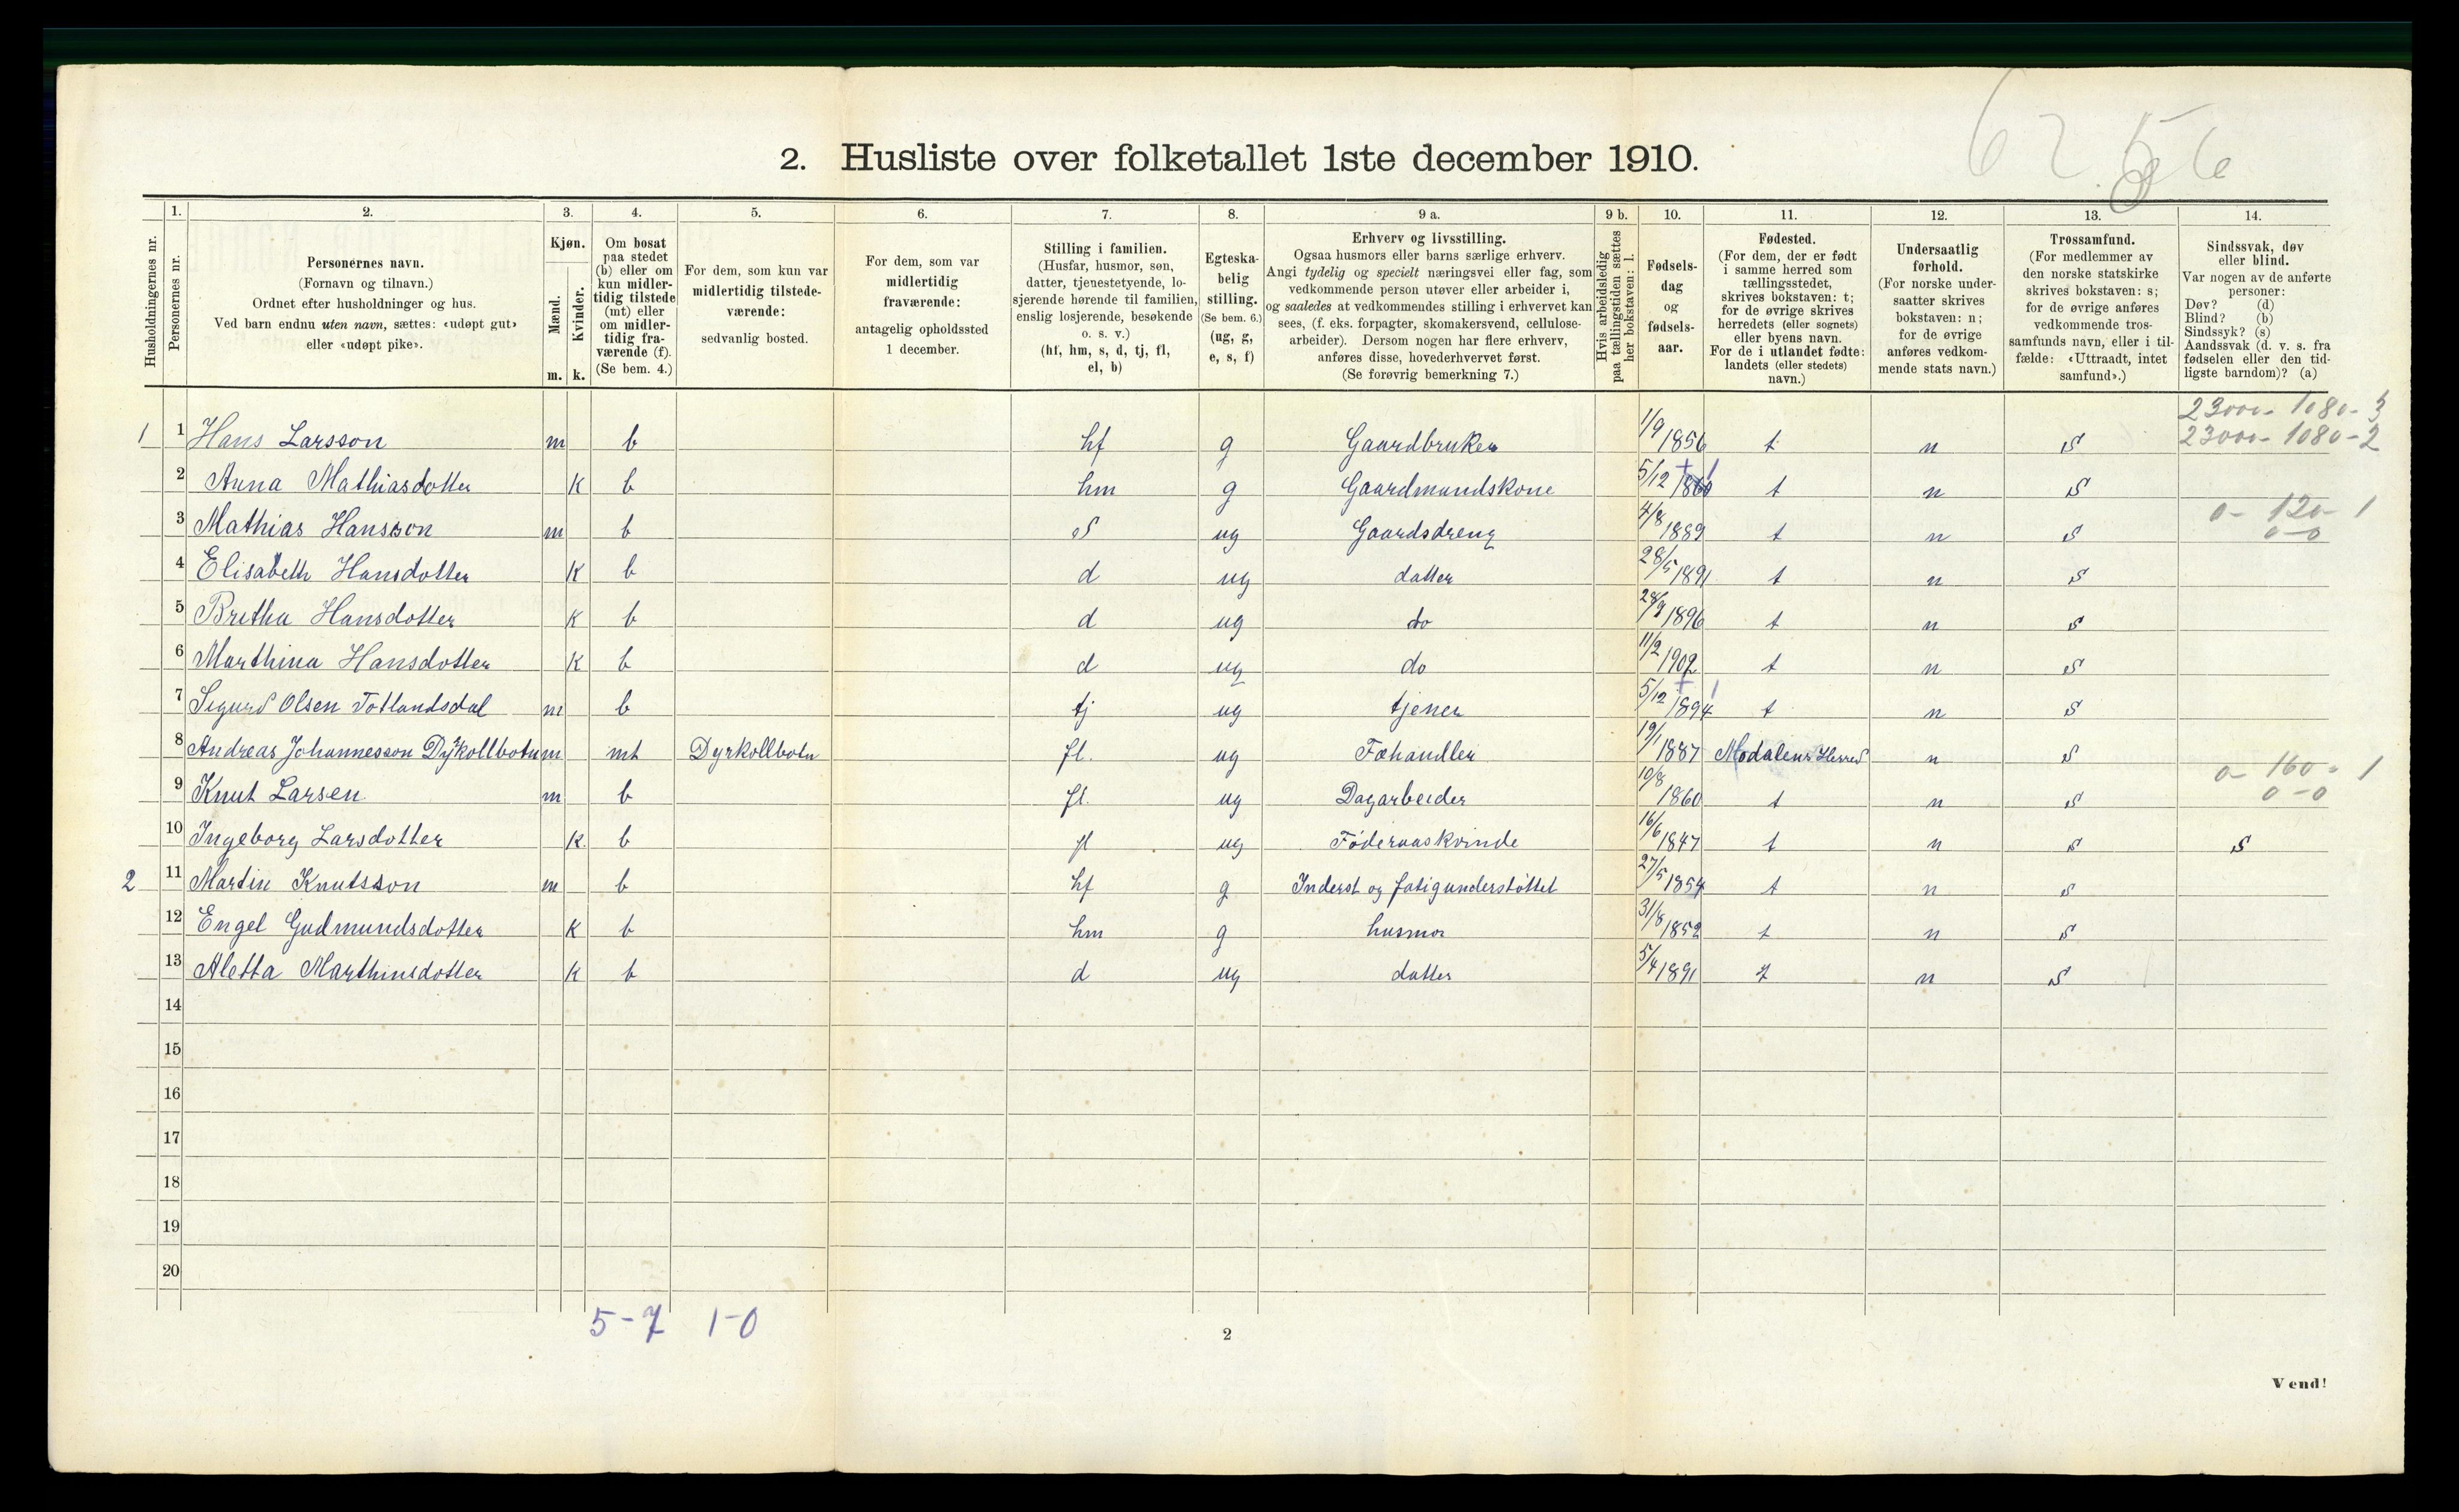 62 56
2. Husliste over folketallet 1ste december 1910.
Husholdningernes nr.
1.
Personernes nr.
2.
Personernes navn.
(Fornavn og tilnavn.)
Ordnet efter husholdninger og hus.
Ved barn endnu uten navn, sættes: «udøpt gut»
eller «udøpt pike».
3.
Kjøn.
Mænd.
Kvinder.
m. k.
4.
Om bosat
paa stedet
(b) eller om
kun midler-
tidig tilstede
(mt) eller
om midler-
tidig fra-
værende (f).
(Se bem. 4.)
5.
For dem, som kun var
midlertidig tilstede-
værende:
sedvanlig bosted.
6.
For dem, som var
midlertidig
fraværende:
antagelig opholdssted
1 december.
7.
Stilling i familien.
(Husfar, husmor, søn,
datter, tjenestetyende, lo-
sjerende hørende til familien,
enslig losjerende, besøkende
o. s. v.)
(hf, hm, s, d, tj, fl,
el, b)
8.
Egteska-
belig
stilling.
(Se bem. 6.)
(ug, g,
e, s, f)
9 a.
Erhverv og livsstilling.
Ogsaa husmors eller barns særlige erhverv.
Angi tydelig og specielt næringsvei eller fag, som
vedkommende person utøver eller arbeider i,
og saaledes at vedkommendes stilling i erhvervet kan
sees, (f. eks. forpagter, skomakersvend, cellulose-
arbeider). Dersom nogen har flere erhverv,
anføres disse, hovederhvervet først.
(Se forøvrig bemerkning 7.)
9 b.
Hvis arbeidsledig
paa tællingstiden sættes
her bokstaven: l.
10.
Fødsels-
dag
og
fødsels-
aar.
11.
Fødested.
(For dem, der er født
i samme herred som
tællingsstedet,
skrives bokstaven: t;
for de øvrige skrives
herredets (eller sognets)
eller byens navn.
For de i utlandet fødte:
landets (eller stedets)
navn.)
12.
Undersaatlig
forhold.
(For norske under-
saatter skrives
bokstaven: n;
for de øvrige
anføres vedkom-
mende stats navn.)
13.
Trossamfund.
(For medlemmer av
den norske statskirke
skrives bokstaven: s;
for de øvrige anføres
vedkommende tros-
samfunds navn, eller i til-
fælde: «Uttraadt, intet
samfund».)
14.
Sindssvak, døv
eller blind.
Var nogen av de anførte
personer:
Døv? (d)
Blind? (b)
Sindssyk? (s)
Aandssvak (d. v. s. fra
fødselen eller den tid-
ligste barndom)? (a)
23000 - 1080 - 3
1 1 Hans Larsson m b hf g Gaardbruker 1/9 1856 t n S 23000 - 1080 - 2
2 Anna Mathiasdotter K b hm g Gaardmandskone 5/12 t n S
3 Mathias Hansson m b S ug Gaardsdreng 4/8 1889 t n S 0 - 120 - 1
0 - 0
4 Elisabeth Hansdotter K b d ug datter 28/5 1891 t n S
5 Britha Hansdotter K b d ug do 1896 t n S
6 Marthina Hansdotter K b d ug do 11/2 1902 t n S
7 Sigurd Olsen Totlandsdal m b tj ug tjener 5/12 1894 t n S
8 Andreas Johannesson Dyrkollbotn m mt Dyrkollbotn fl. ug Fæhandler 19/1 1887 Modalens Herred n S
9 Knut Larsen m b fl. ug Dagarbeider 10/8 1860 t n S 0 - 160 - 1
0 - 0
10 Ingeborg Larsdotter K. b fl ug Föderaaskvinde 16/6 1847 t n S S
2 11 Martin Knutsson m b hf g Inderst og fatigunderstöttet 27/5 1854 t n S
12 Engel Gudmundsdotter K b hm g husmor 31/8 1852 t n S
13 Aletta Marthinsdotter K b d ug datter 5/4 1891 t n S
14
15
16
17
18
19
20
5 - 7 1 - 0
2
Vend!